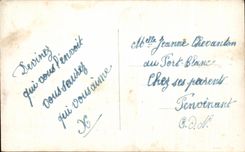 Devinez
qui vous l'envoit
vous
qui vous aime
X
Melle Jeanne Chevanton
du Port Blanc
Chez ses parents
Penvénant
C.d.N.